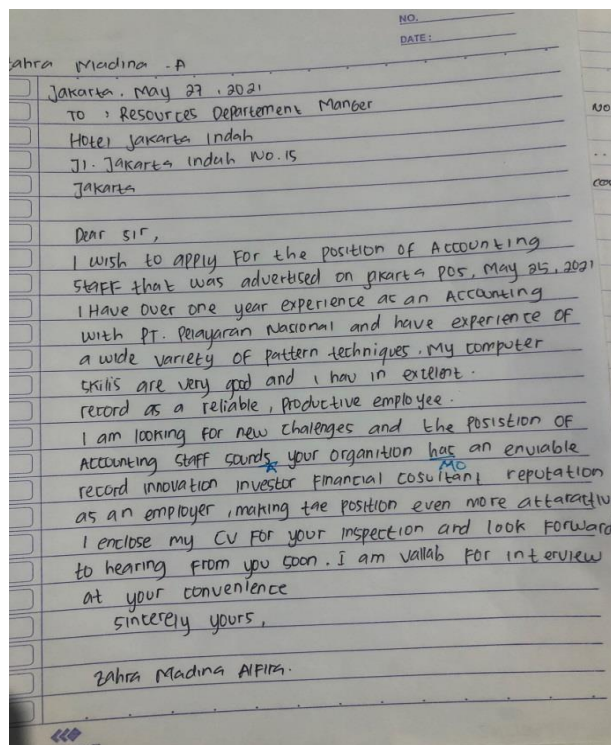 NO.
DATE:
ahra Madina .A
Jakarta, May 27, 2021
TO : Resources Departement Manger
Hotel Jakarta Indah
Jl. Jakarta Indah No.15
Jakarta
NO
Dear sir,
I wish to apply For the position of Accounting
Staff that was advertised on jakarta pos, May 25, 2021
I Have over one year experience as an Accounting
with PT. Pelayaran Nasional and have experience of
a wide variety of pattern techniques. My computer
skills are very good and i hav in excelent.
record as a reliable, productive employee.
I am looking for new chalenges and the posistion of
Accounting staff sounds your organition has an enviable
record innovation investor Financial cosultant reputation
as an employer, making the position even more attarativ
I enclose my CV For your inspection and look Forward
to hearing From you soon. I am vallab For interview
at your convenience
Sincerely yours,
Zahra Madina Alfira.